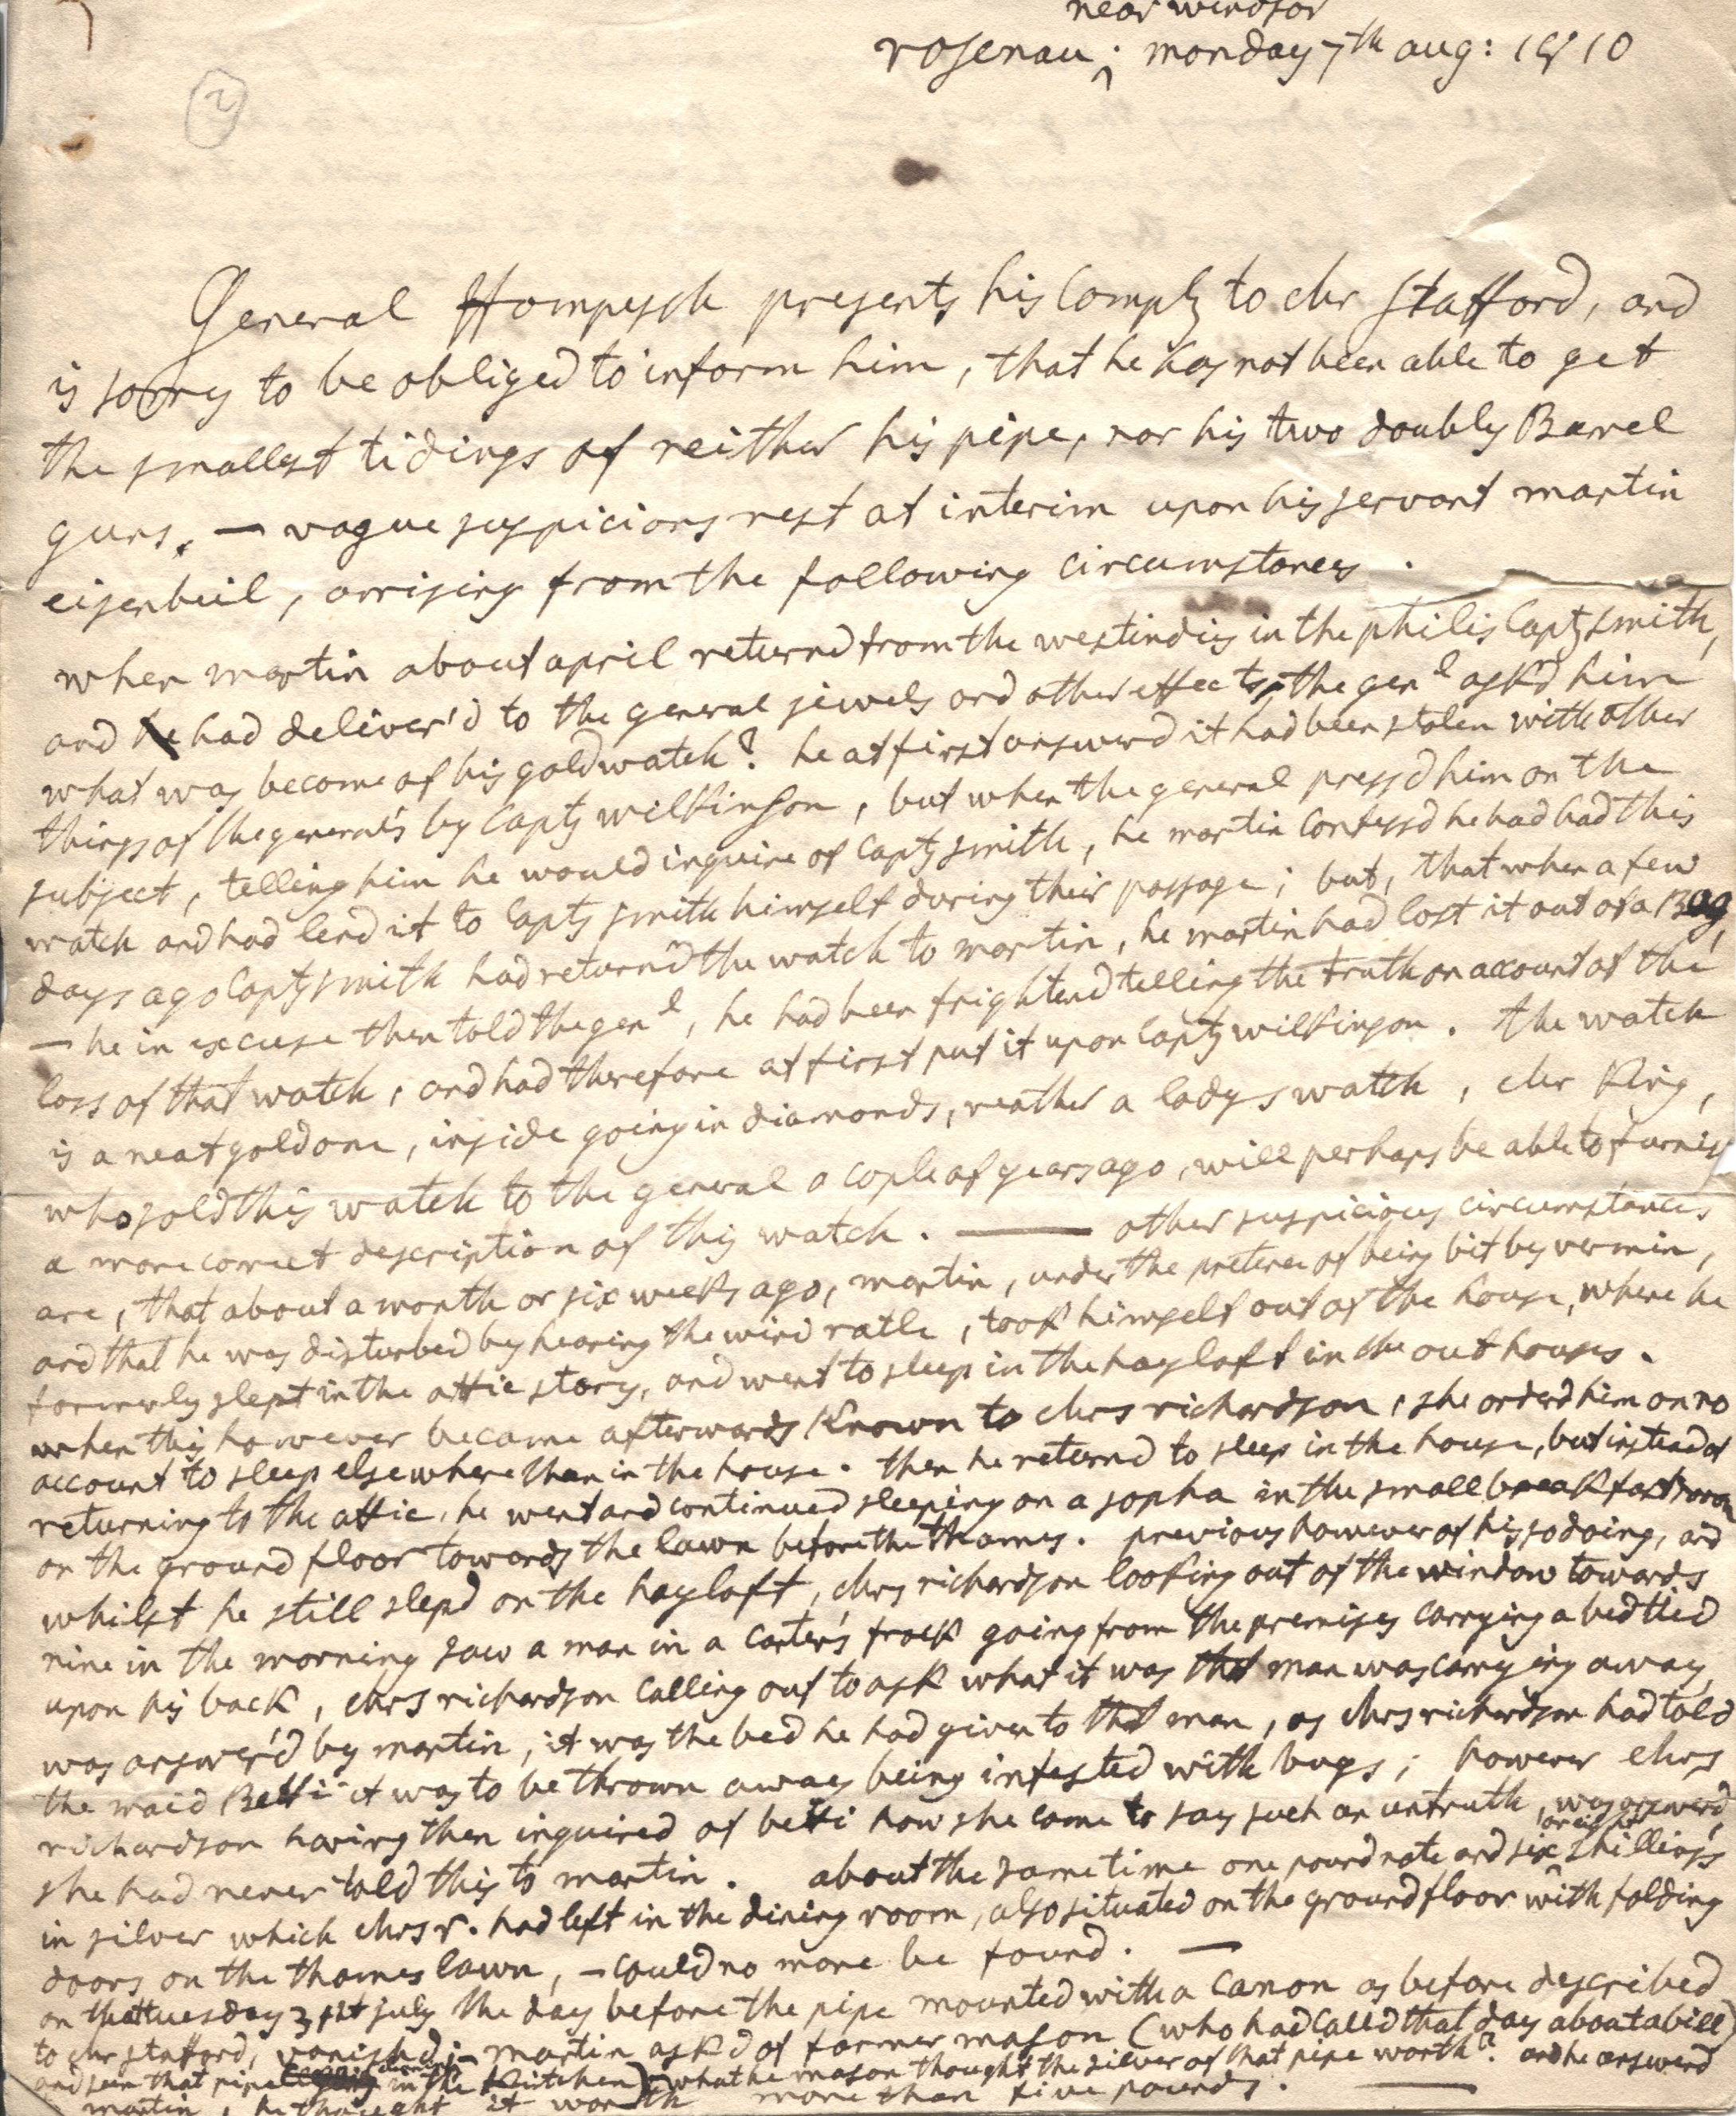 near windsor
rosenau; monday 7th aug: 1810
2
General Hompesch presents his Complts to Mr Stafford, and
is sorry to be obliged to inform him, that he has not been able to get
the smallest tidings of neither his pipe, nor his two doubly Barrel
guns. — vague suspicions rest at interim upon his servant martin
eisenbeil, arrising from the following circumstances.
when martin about april returnd from the westindies in the philis Capt smith,
and had deliver'd to the general jewels and other effects, the genl ask'd him
what was become of his gold watch? he at first answerd it had been stolen with other
things of the general's by Capt wilkinson, but when the general press'd him on the
subject, telling him he would inquire of Capt smith, he martin confess'd he had had this
watch and had lend it to Capt smith himself during their passage; but, that when a few
days ago Capt smith had return'd the watch to martin, he martin had lost it out of a Bag,
— he in excuse then told the genl, he had been frightend telling the truth on account of the
loss of that watch, and had therefore at first put it upon Capt wilkinson. The watch
is a neat gold one, inside going in diamonds, reather a ladys watch, Mr King,
who sold this watch to the general a cople of years ago, will perhaps be able to furnish
a more correct description of this watch. — other suspicious circumstances
are, that about a month or six weeks ago, martin, under the pretence of being bit by vermin,
and that he was disturbed by hearing the wind ratle, took himself out of the house, where he
formerly slept in the attic story, and went to sleep in the hayloft in the out houses.
when this however became afterwards Known to Mrs richardson, she orderd him on no
account to sleep elsewhere than in the house. then he returnd to sleep in the house, but instead of
returning to the attic, he went and continued sleeping on a sopha in the small breakfastroom
on the ground floor towards the lawn before the thames. previous however of his so doing, and
whilst he still slepd on the hayloft, Mrs richardson looking out of the window towards
nine in the morning saw a man in a carter's frock going from the premises carrying a bed tied
upon his back, Mrs richardson calling out to ask what it was that man was carrying away,
was answer'd by martin, it was the bed he had given to that man, as Mrs richardson had told
the maid Betti it was to be thrown away being infested with bugs; however Mrs
richardson having then inquired of betti how she came to say such an untruth, was answerd,
she had never told this to martin. about the same time one pound note and six or eight shillings
in silver which Mrs r. had left in the dining room, also situated on the ground floor with folding
doors on the thames lawn, — could no more be found. —
on the tuesday 31st july the day before the pipe mounted with a canon as before described
to Mr stafford, vanished; — martin ask'd of farmer mason (who had called that day about a bill)
and seen that pipe in the Kitchen) what he mason thought the silver of that pipe worth? and he answerd
martin, he thought it worth more than five pounds. —